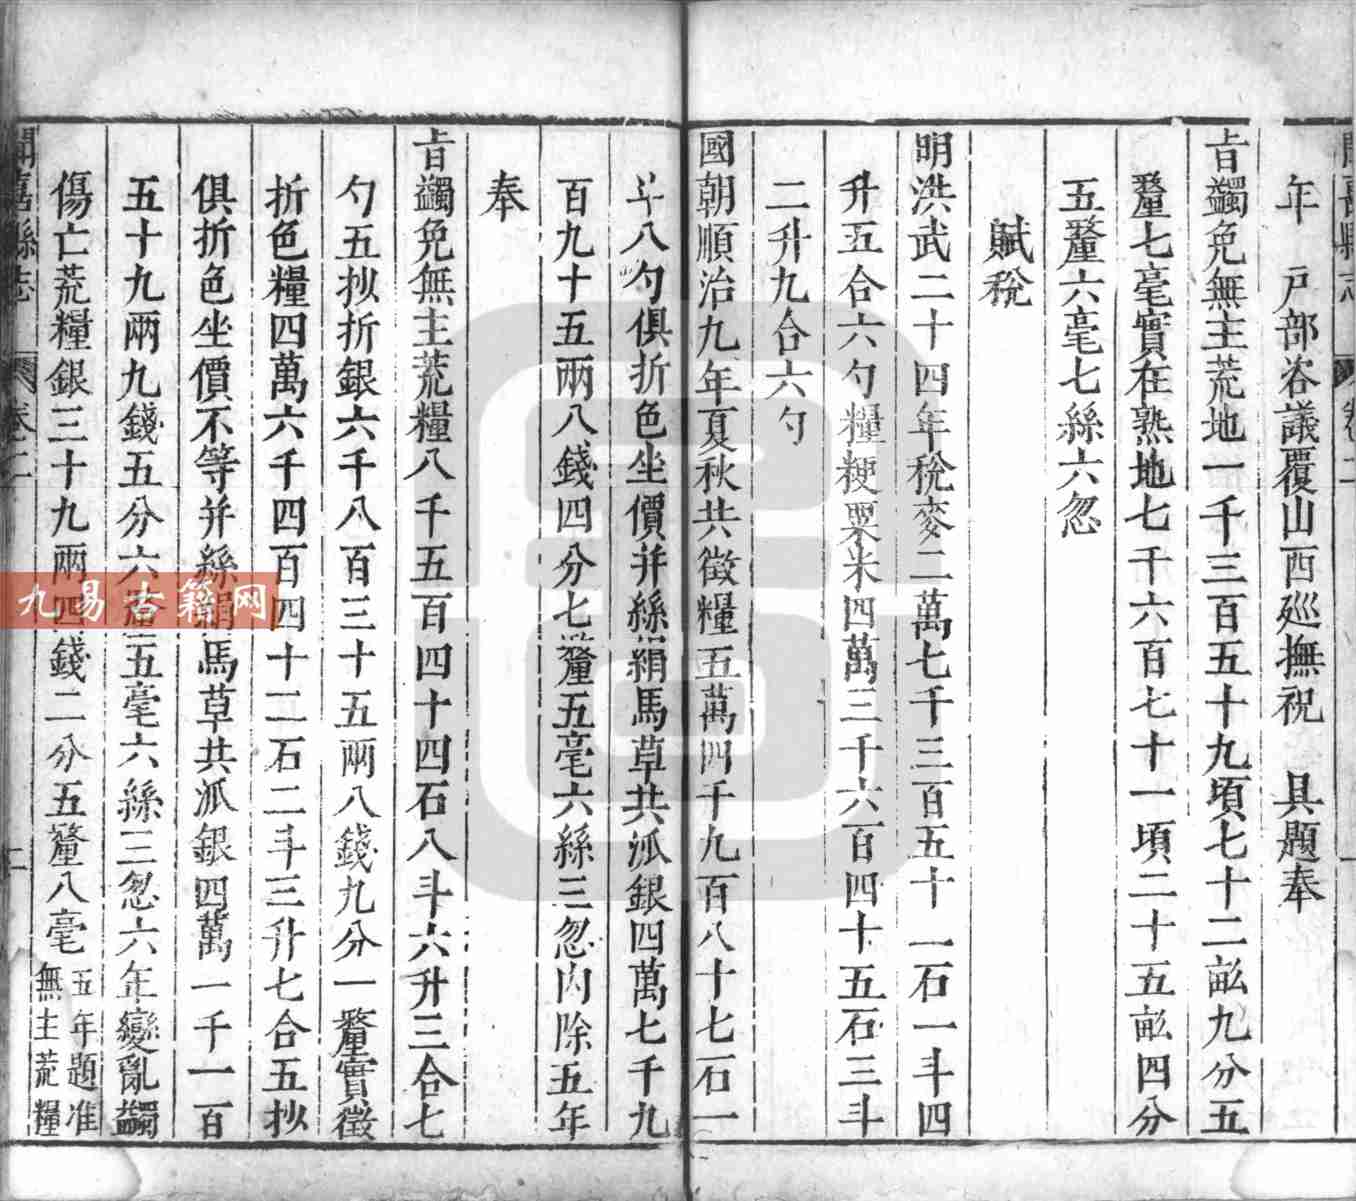 年　戸部咨議覆山西廵撫祝　具題奉
旨蠲免無主荒地一千三百五十九頃七十二畆九分五
釐七毫實在熟地七千六百七十一頃二十五畆四分
五釐六毫七絲六忽
賦稅
明洪武二十四年稅麥二萬七千三百五十一石一斗四
升五合六勺糧粳粟米四萬三千六百四十五石三斗
二升九合六勺
國朝順治九年夏秋共徵糧五萬四千九百八十七石一
斗八勺俱折色坐價并絲絹馬草共派銀四萬七千九
百九十五兩八錢四分七釐五毫六絲三忽内除五年
奉
旨蠲免無主荒糧八千五百四十四石八斗六升三合七
勺五抄折銀六千八百三十五兩八錢九分一釐實徵
折色糧四萬六千四百四十二石二斗三升七合五抄
俱折色坐價不等并絲絹馬草共派銀四萬一千一百
五十九兩九錢五分六釐五毫六絲三忽六年變亂蠲
傷亡荒糧銀三十九兩四錢二分五釐八毫五年題准
無主荒糧
聞喜縣志　卷二　二
九易古籍网